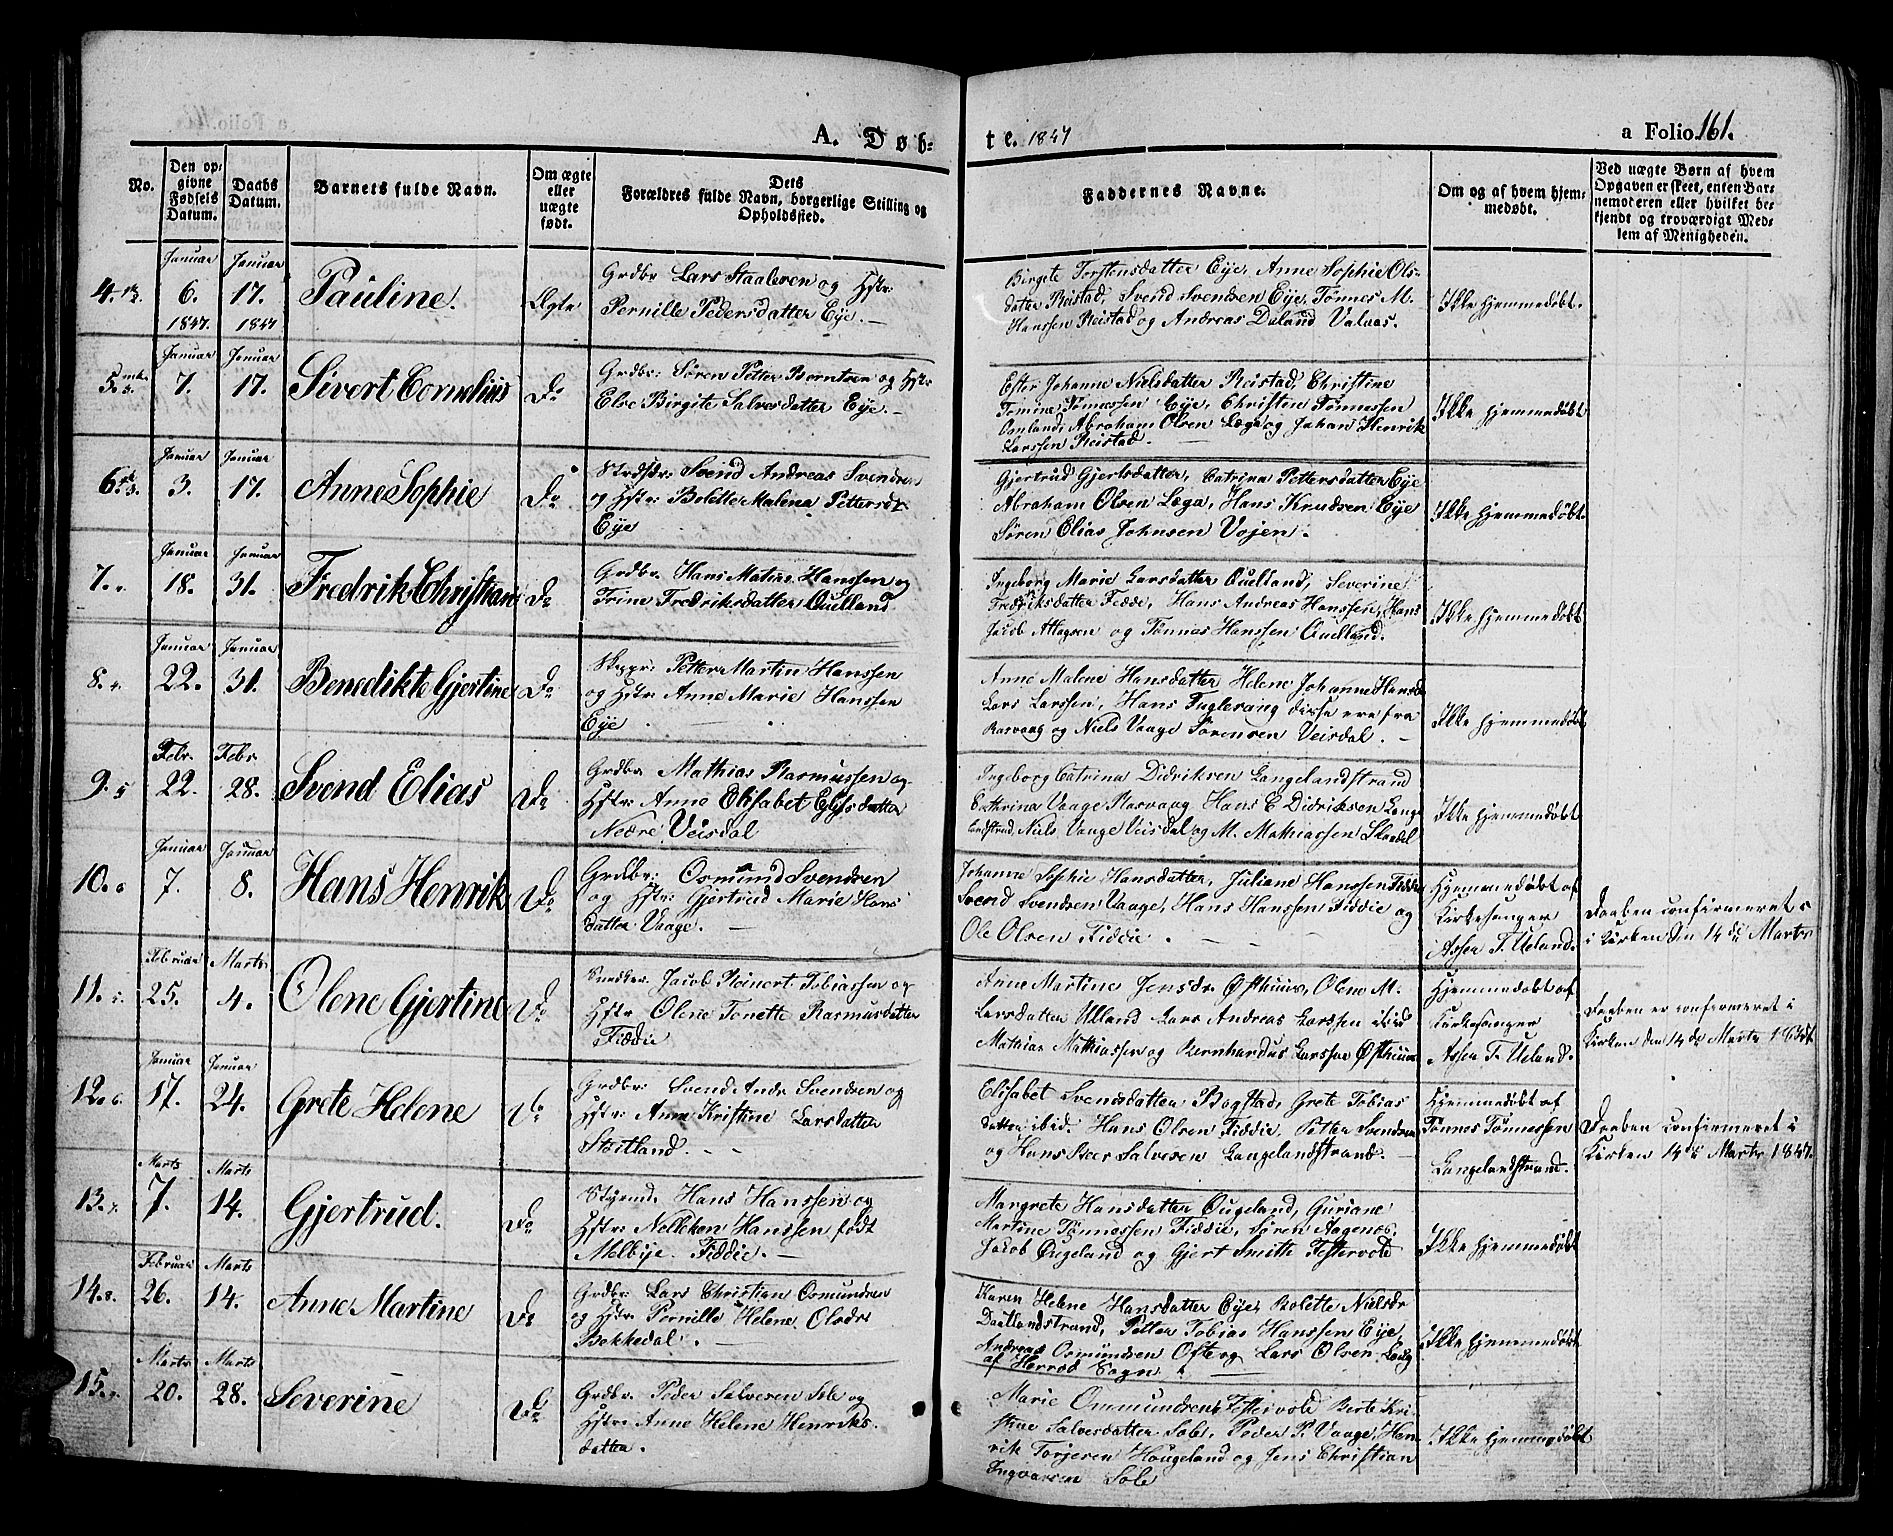 A. Døb-
te. 1847
a Folio 161.
No.
Den op-
givne
Fødsels
Datum.
Daabs
Datum.
Barnets fulde Navn.
Om ægte
eller
uægte
født.
Dets
Forældres fulde Navn, borgerlige Stilling og
Opholdssted.
Faddernes Navne.
Om og af hvem hjem-
medøbt.
Ved uægte Børn af hvem
Opgaven er skeet, enten Bar-
nemoderen eller hvilket be-
kjendt og troværdigt Med-
lem af Menigheden.
4.
Januar
6.
1847.
Januar
17.
1847
Pauline.
Ægte
Grdbr Lars Staalesen og Hstr:
Pernille Pedersdatter Eye.—
Birgete Torstensdatter Eye, Anne Sophie Ols-
datter Reistad, Svend Svendsen Eye, Tønnes M.
Hanssen Reistad og Andreas Valvas.
Ikke hjemmedøbt.
5.
Januar
7.
Januar
17.
Sivert Cornelius
Do
Grdbr: Søren Petter Berntsen og Hstr:
Else Birgite Salvesdatter Eye.—
Ester Johanne Nielsdatter Reistad, Christine
Tomine Tønnessen Eye, Christen Tønnessen
Omland, Abraham Olsen Lega og Johan Henrik
Larssen Reistad.
Ikke hjemmedøbt
6.
Januar
3.
Januar
17.
Anne Sophie
Do
Svend Andreas Svendsen
og Hstr: Bolette Malena Pettersdr
Eye
Gjertrud Gjertsdatter, Catrina Pettersdatter Eye
Abraham Olsen Lega, Hans Knudsen Eye
Søren Elias Johnsen Vojen.
Ikke hjemmedøbt.
7.
Januar
18.
Januar
31.
Fredrik Christian
Do
Grdbr. Hans Matias Hanssen og
Trine Fredriksdatter Ouelland
Ingeborg Marie Larsdatter Ouelland, Severine
Fredriksdatter Fedde, Hans Andreas Hanssen, Hans
Jacob og Tønnes Hanssen Ouelland.
Ikke hjemmedøbt
8.
Januar
22.
Januar
31.
Benedikte Gjertine
Do
Skippr: Petter Martin Hanssen
og Hstr Anne Marie Hanssen
Eye
Anne Malene Hansdatter Helene Johanne Hansdr
Lars Larssen, Hans Fuglevang disse ere fra
Rasvaag og Niels Vaage Sørensen Veisdal.—
Ikke hjemmedøbt
9.
Febr.
22.
Febr
28.
Svend Elias
Do
Grdbr: Mathias Rasmussen og
Hstr: Anne Elisabet datter
Nedre Veisdal
Ingeborg Catrina Didriksen Langelandstrand
Cathrina Vaage Rasvaag Hans E Didriksen Lange
landstrand, Niels Vaage Veisdal og M. Mathiassen
Ikke hjemmedøbt
10.
Januar
7.
Januar
8.
Hans Henrik
Do
Grdbr: Osmund Svendsen
og Hstr: Gjertrud Marie Hans
datter Vaage.—
Johanne Sophie Hansdatter, Juliane Hanssen Fidde
Svend Svendsen Vaage, Hans Hanssen Fiddie og
Ole Olsen Fiddie.
Hjemmedøbt af
Kirkesanger
Asser T. Ueland.
Daaben confirmeret
i Kirken den 14 de Marts
11.
Februar
25.
Marts
4.
Olene Gjertine
Do
Snedker: Jacob Reinert Tobiassen og
Hstr Olene Tonette Rasmusdatter
Fiddie
Anne Martine Jensdr Østhuus, Olene M.
Larsdatter Ulland Lars Andreas Larssen ibid
Mathias Mathiassen og Bernhardus Larssen Østhuus
Hjemmedøbt af
Kirkesanger
Asser T. Ueland.
Daaben er confirmeret i
Kirken den 14 de Marts 1847.
12.
Januar
17.
Januar
24.
Grete Helene
Do
Grdbr: Svend Andr Svendsen og
Hstr: Anne Kristine Larsdatter
Støitland.
Elisabet Svensdatter Bogstad, Grete Tobias
datter ibid. Hans Olsen Fiddie, Petter Svendsen
og Hans Peer Salvesen Langelandstrand.
Hjemmedøbt af
Tønnes Tønnessen
Langelandstrand.
Daaben confirmeret i
Kirken 14 de Marts 1847.
13.
Marts
7.
Marts
14.
Gjertrud.
Do
Styrmd: Hans Hanssen og
Hstr: Hanssen født
Melbye. Fiddie.—
Margrete Hansdatter Ougeland, Guriane
Martine Tønnessen Fiddie, Søren Aagenes.
Jacob Ougeland og Gjert Smith Festervold
Ikke hjemmedøbt
14.
Februar
26.
Marts
14.
Anne Martine
Do
Grdbr: Lars Christian Osmundsen
og Hstr Pernille Helene Olsdr
Bekkedal.—
Karen Helene Hansdatter Eye, Bolette Nielsdr
Daatlandstrand, Petter Tobias Hanssen Eye,
Andreas Osmundsen Ofte og Lars Olsen
af Herrod Sogn.
Ikke hjemmedøbt
15.
Marts
20.
Marts
28.
Severine
Do
Grdbr. Peder Salvesen Sole og
Hstr: Anne Helene Henriks-
datter.
Marie Ommundsen Festervold Berte Kri-
stine Salvesdatter Sole, Peder P. Vaage, Hen-
rik Torjesen Hougeland og Jens Christian
Ingvarsen Sole
Ikke hjemmedøbt